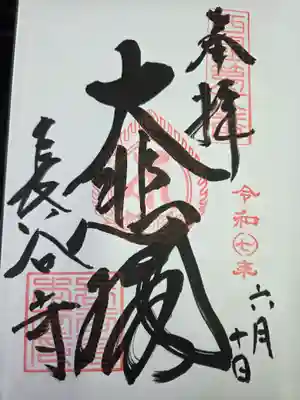 奉拝
令和七年
六月
十日
大悲閣
長谷寺